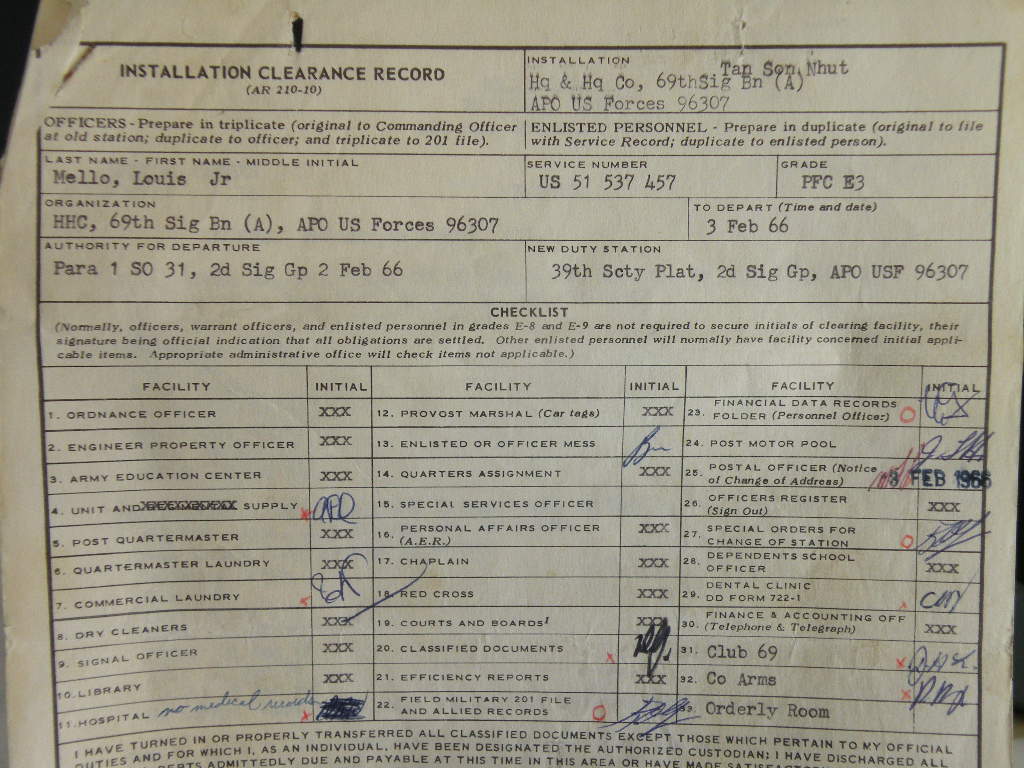 INSTALLATION CLEARANCE RECORD
(AR 210-10)
INSTALLATION
Tan Son Nhut
Hq & Hq Co, 69thSig Bn (A)
APO US Forces 96307
OFFICERS - Prepare in triplicate (original to Commanding Officer
at old station; duplicate to officer; and triplicate to 201 file).
ENLISTED PERSONNEL - Prepare in duplicate (original to file
with Service Record; duplicate to enlisted person).
LAST NAME - FIRST NAME - MIDDLE INITIAL
Mello, Louis Jr
SERVICE NUMBER
US 51 537 457
GRADE
PFC E3
ORGANIZATION
HHC, 69th Sig Bn (A), APO US Forces 96307
TO DEPART (Time and date)
3 Feb 66
AUTHORITY FOR DEPARTURE
Para 1 SO 31, 2d Sig Gp 2 Feb 66
NEW DUTY STATION
39th Scty Plat, 2d Sig Gp, APO USF 96307
CHECKLIST
(Normally, officers, warrant officers, and enlisted personnel in grades E-8 and E-9 are not required to secure initials of clearing facility, their
signature being official indication that all obligations are settled. Other enlisted personnel will normally have facility concerned initial appli-
cable items. Appropriate administrative office will check items not applicable.)
FACILITY INITIAL FACILITY INITIAL FACILITY INITIAL
1. ORDNANCE OFFICER XXX
2. ENGINEER PROPERTY OFFICER XXX
3. ARMY EDUCATION CENTER XXX
4. UNIT AND SUPPLY
5. POST QUARTERMASTER XXX
6. QUARTERMASTER LAUNDRY XXX
7. COMMERCIAL LAUNDRY
8. DRY CLEANERS XXX
9. SIGNAL OFFICER XXX
10. LIBRARY XXX
11. HOSPITAL no medical records
12. PROVOST MARSHAL (Car tags) XXX
13. ENLISTED OR OFFICER MESS
14. QUARTERS ASSIGNMENT XXX
15. SPECIAL SERVICES OFFICER
16. PERSONAL AFFAIRS OFFICER
(A.E.R.) XXX
17. CHAPLAIN XXX
18. RED CROSS XXX
19. COURTS AND BOARDS¹ XXX
20. CLASSIFIED DOCUMENTS
21. EFFICIENCY REPORTS XXX
22. FIELD MILITARY 201 FILE
AND ALLIED RECORDS
23. FINANCIAL DATA RECORDS
FOLDER (Personnel Officer)
24. POST MOTOR POOL
25. POSTAL OFFICER (Notice
of Change of Address) 3 FEB 1966
26. OFFICERS REGISTER
(Sign Out) XXX
27. SPECIAL ORDERS FOR
CHANGE OF STATION
28. DEPENDENTS SCHOOL
OFFICER XXX
29. DENTAL CLINIC
DD FORM 722-1
30. FINANCE & ACCOUNTING OFF
(Telephone & Telegraph) XXX
31. Club 69
32. Co Arms
33. Orderly Room
I HAVE TURNED IN OR PROPERLY TRANSFERRED ALL CLASSIFIED DOCUMENTS EXCEPT THOSE WHICH PERTAIN TO MY OFFICIAL
DUTIES AND FOR WHICH I, AS AN INDIVIDUAL, HAVE BEEN DESIGNATED THE AUTHORIZED CUSTODIAN; I HAVE DISCHARGED ALL
DEBTS ADMITTEDLY DUE AND PAYABLE AT THIS TIME IN THIS AREA OR HAVE MADE